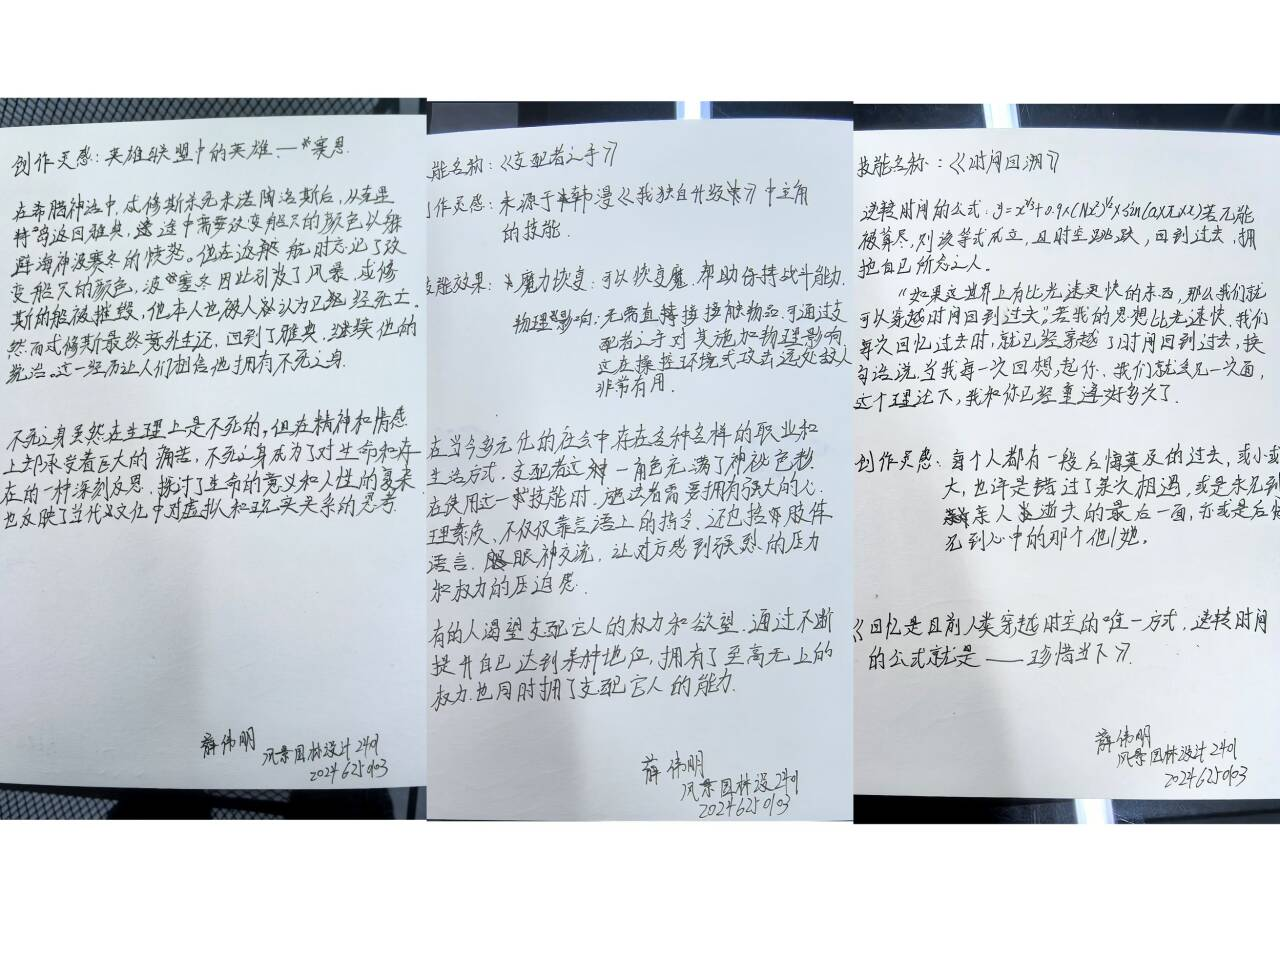 创作灵感：英雄联盟中的英雄——赛恩
在希腊神话中，忒修斯杀死米诺陶洛斯后，从克里
特岛返回雅典，途中需要改变船只的颜色以躲
避海神波赛冬的愤怒。他在返航时忘记了改
变船只的颜色，波赛冬因此引发了风暴，忒修
斯的船被摧毁，他本人也被人认为已经死亡。
然而忒修斯最终意外生还，回到了雅典，继续他的
统治。这一经历让人们相信他拥有不死之身
不死之身虽然在生理上是不死的，但在精神和情感
上却承受着巨大的痛苦，不死之身成为了对生命和存
在的一种深刻反思，探讨了生命的意义和人性的复杂
也反映了当代文化中对虚拟和现实关系的思考
薛伟明
风景园林设计2401
20246250103
能名称：《支配者之手》
作灵感：来源于韩漫《我独自升级》中主角
的技能.
效果：魔力恢复：可以恢复魔，帮助保持战斗能力.
物理影响：无需直接接触物品，可通过支
配者之手对其施加物理影响
这在操控环境或攻击远处敌人
非常有用.
在当今多元化的社会中存在各种各样的职业和
生活方式，支配者这一角色充满了神秘色彩.
在使用这一技能时，施法者需要拥有强大的心
理素质，不仅仅靠言语上的指令，还包括肢体
语言，眼神交流，让对方感到强烈的压力
和权力的压迫感.
有的人渴望支配它人的权力和欲望，通过不断
提升自己达到某种地位，拥有了至高无上的
权力，也同时拥了支配它人的能力.
薛伟明
风景园林设2401
20246250103
技能名称：《时间回溯》
逆转时间的公式：y=x^⅔+0.9×(N-x²)^½×sin(a×π×x)若π能
被算尽，则该等式成立，且时空跳跃，回到过去，拥
抱自己所念之人.
“如果这世界上有比光速更快的东西，那么我们就
可以穿越时间回到过去”，若我的思想比光速快，我们
每次回忆过去时，就已经穿越了时间回到过去，换
句话说，当我每一次回想起你，我们就会见一次面，
这个理论下，我和你已经重逢好多次了.
创作灵感：每个人都有一段后悔莫及的过去，或小或
大，也许是错过了某次相遇，或是未见到
亲人逝去的最后一面，亦或是后悔
见到心中的那个他/她。
《回忆是目前人类穿越时空的唯一方式，逆转时间
的公式就是——珍惜当下》.
薛伟明
风景园林设计2401
20246250103